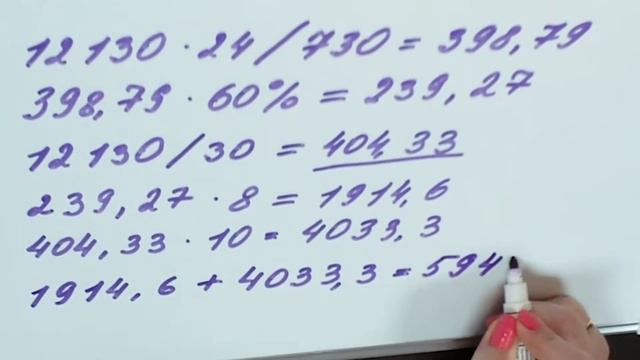 12 130 · 24 / 730 = 398,79
398,79 · 60% = 239,27
12 130 / 30 = 404,33
239,27 · 8 = 1914,6
404,33 · 10 = 4033,3
1914,6 + 4033,3 = 594